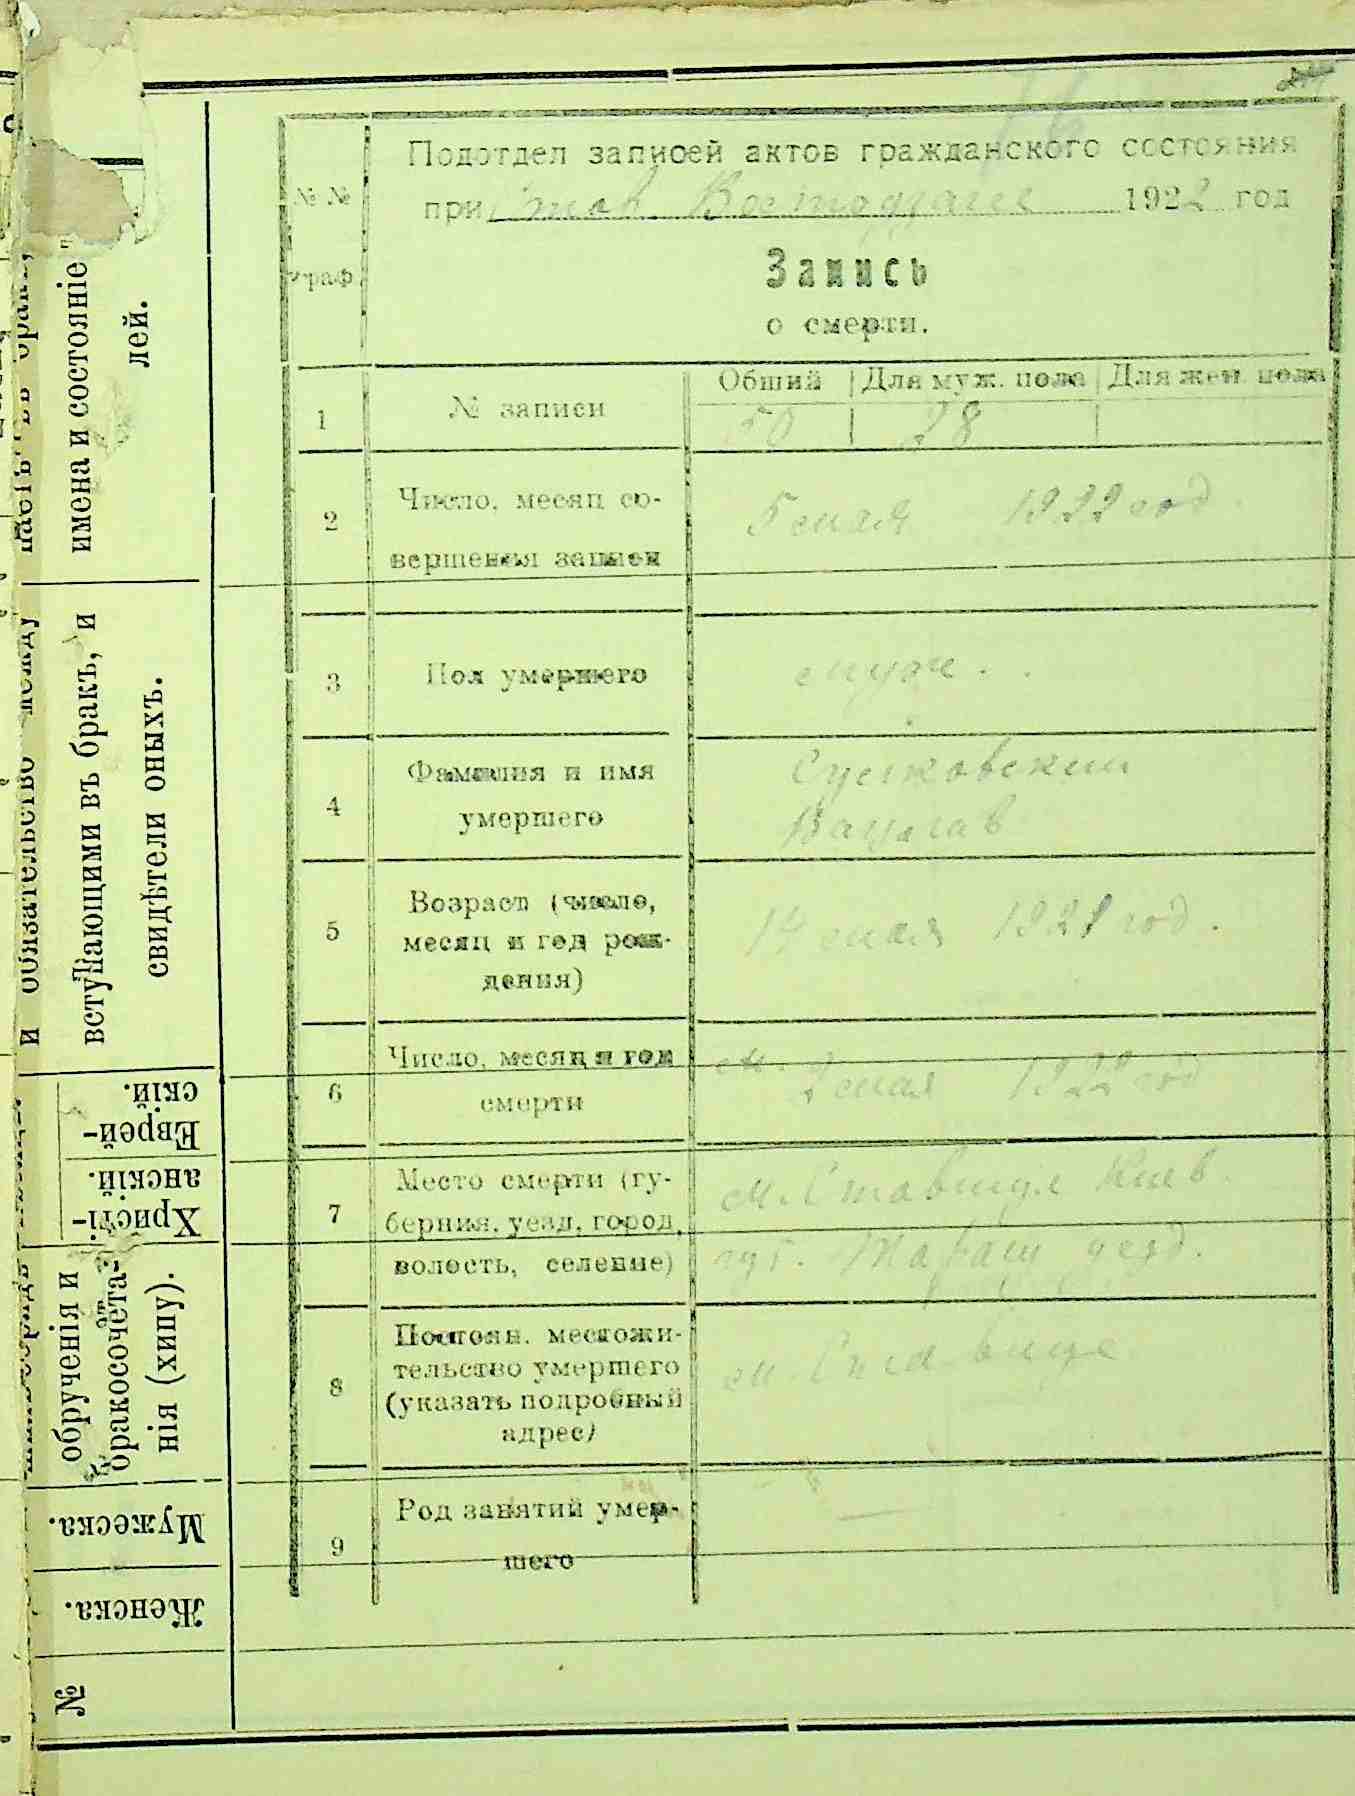 Подотдел записей актов гражданского состояния
при 1922 год
№ №
граф.
Запись
о смерти.
1 № записи
Общий Для муж. пола Для жен. пола
50 28
2 Число, месяц со-
вершения записи
5 мая 1922 год.
3 Пол умершего
муж.
4 Фамилия и имя
умершего
Вацлав
5 Возраст (число,
месяц и год рож-
дения)
14 мая 1921 год.
6 Число, месяц и год
смерти
2 мая 1922 год
7 Место смерти (гу-
берния, уезд, город,
волость, селение)
м. Ставище Киев.
губ. Таращ уезд.
8 Постоян. местожи-
тельство умершего
(указать подробный
адрес)
м. Ставище
9 Род занятий умер-
шего
—
имена и состояніе
лей.
и обязательство между
вступающими въ бракъ, и
свидѣтели оныхъ.
Еврей-
скій.
Христі-
анскій.
обрученія и
бракосочета-
нія (хипу).
Мужеска.
Женска.
№